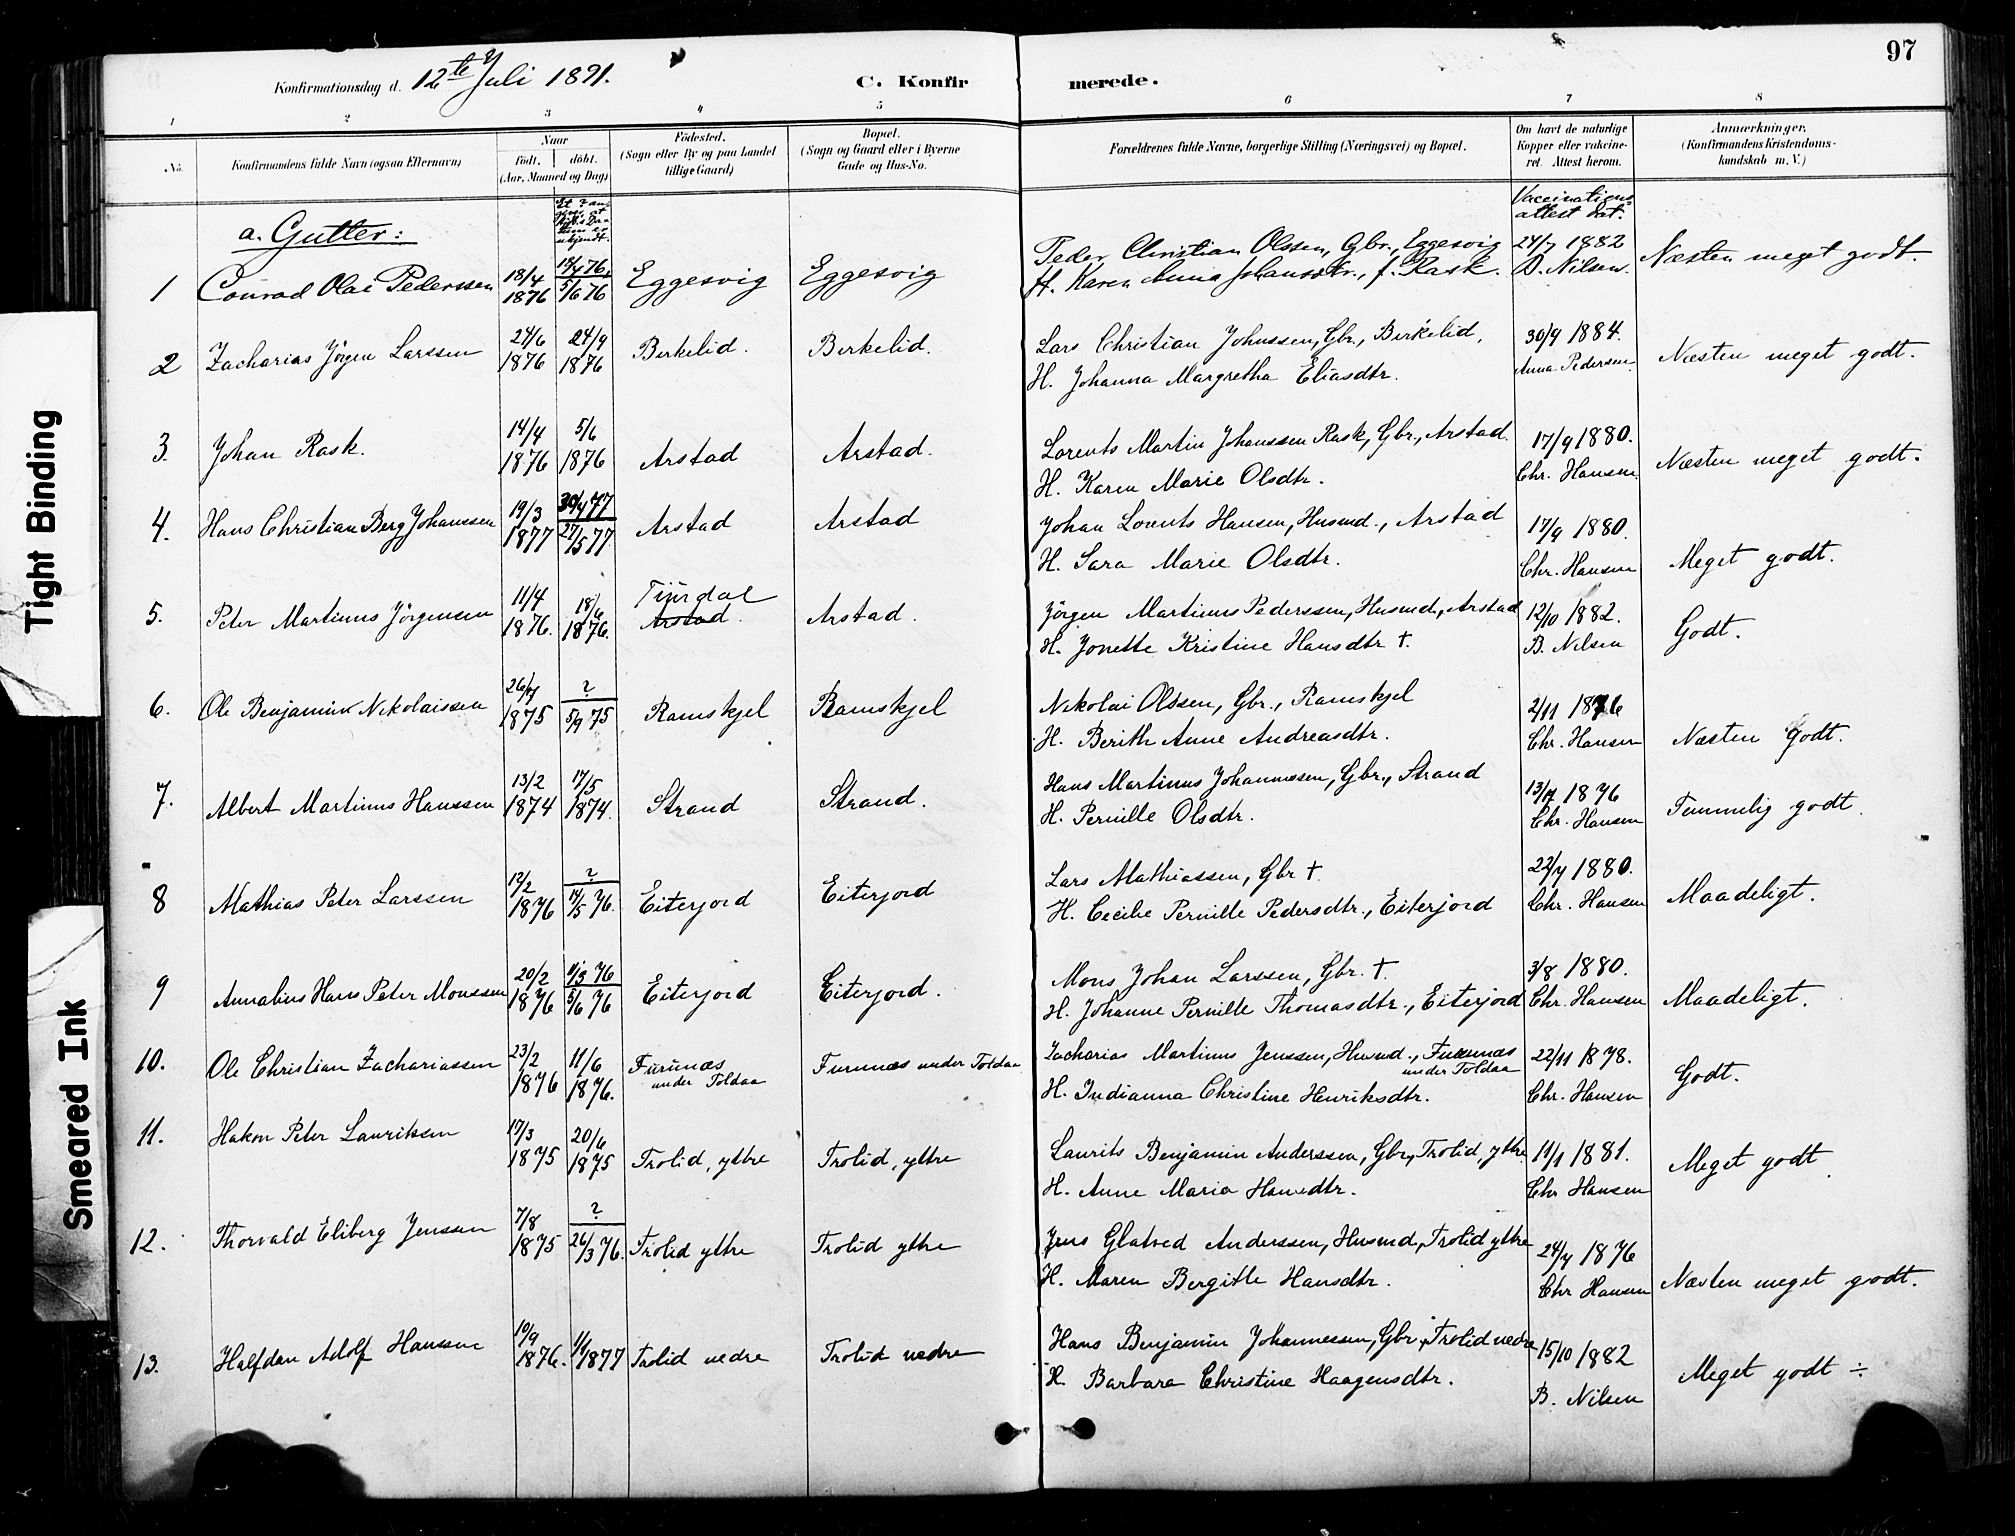 97
Konfirmationsdag d. 12te Juli 1891.
C. Konfirmerede.
1 2 3 4 5 6 7 8
No.
Konfirmandens fulde Navn (ogsaa Efternavn)
Naar
födt. döbt.
(Aar, Maaned og Dag)
Födested.
(Sogn eller By og paa Landet
tillige Gaard)
Bopæl.
(Sogn og Gaard eller i Byerne
Gade og Hus-No.
Forældrenes fulde Navne, borgerlige Stilling (Næringsvei) og Bopæl.
Om havt de naturlige
Kopper eller vakcine-
ret. Attest herom.
Anmærkninger.
(Konfirmandens Kristendoms-
kundskab m. V.)
a. Gutter:
Vaccinations-
attest dat.
1 Conrad Olai Pederssen 18/4 1876 5/6 76 Eggesvig Eggesvig
Peder Christian Olssen, Gbr., Eggesvig 24/7 1882
H. Karen Anna Johansdtr., f. Rask. B. Nilsen. Næsten meget godt.
2 Zacharias Jörgen Larssen 24/6 1876 24/9 1876 Birkelid. Birkelid.
Lars Christian Johnssen, Gbr., Birkelid, 30/9 1884.
H. Johanna Margretha Eliasdtr. Anna Pedersen. Næsten meget godt.
3. Johan Rask. 14/4 1876 5/6 1876 Arstad Arstad.
Lorents Martin Johanssen Rask, Gbr., Arstad. 17/9 1880.
H. Karen Marie Olsdtr. Chr. Hansen. Næsten meget godt.
4. Hans Christian Berg Johanssen 19/3 1877 30/4 77 27/5 77. Arstad Arstad
Johan Lorents Hansen, Husmd., Arstad 17/9 1880.
H. Sara Marie Olsdtr. Chr. Hansen Meget godt.
5. Peter Martinus Jörgensen 11/4 1876. 18/6 1876. Arstad. Arstad.
Jörgen Martinus Pederssen, Husmd., Arstad 12/10 1882.
H. Jonette Kristine Hansdtr †. B. Nilsen Godt.
6. Ole Benjamin Nikolaissen 26/7 1875 ? 5/9 75 Ramskjel Ramskjel
Nikolai Olssen, Gbr., Ramskjel 2/11 1876
H. Berith Anne Andreasdtr. Chr. Hansen Næsten Godt.
7. Albert Martinus Hanssen 13/2 1874 17/5 1874. Strand Strand.
Hans Martinus Johannessen, Gbr., Strand 1876
H. Pernille Olsdtr. Chr. Hansen Temmelig godt.
8 Mathias Peter Larssen 12/2 1876 ? 14/5 76. Eiterjord Eiterjord
Lars Mathiassen, Gbr † 22/7 1880.
H. Cecilie Pernille Pedersdtr., Eiterjord Chr. Hansen Maadeligt.
9 Annalius Hans Peter Monssen 20/2 1876 11/3 76 5/6 76 Eiterjord Eiterjord.
Mons Johan Larssen, Gbr. †. 3/8 1880.
H. Johanne Pernille Thomasdtr., Eiterjord Chr. Hansen Maadeligt.
10. Ole Christian Zachariassen 23/2 1876 11/6 1876. Furunæs under Toldaa Furunæs under Toldaa
Zacharias Martinus Jenssen, Husmd., Furunæs under Toldaa 22/11 1878.
H. Indianna Christine Henriksdtr. Chr. Hansen Godt.
11. Hakon Peter Lauritssen 17/3 1875 20/6 1875 Trolid, yttre Trolid, yttre
Laurits Benjamin Anderssen, Gbr., Trolid, yttre 11/1 1881.
H. Anne Maria Hansdtr. Chr Hansen Meget godt
12. Thorvald Eliberg Jenssen 7/8 1875 ? 26/3 76. Trolid yttre Trolid yttre
Jens Glatved Anderssen, Husmd, Trolid yttre 24/7 1876
H. Maren Bergitte Hansdtr. Chr Hansen Næsten meget godt.
13. Halfdan Adolf Hanssen 10/9 1876. 1/1 1877 Trolid nedre Trolid nedre
Hans Benjamin Johannessen, Gbr., Trolid nedre 15/10 1882
H. Barbara Christine Haagensdtr. B. Nilsen Meget godt ÷
Tight Binding
Smeared Ink